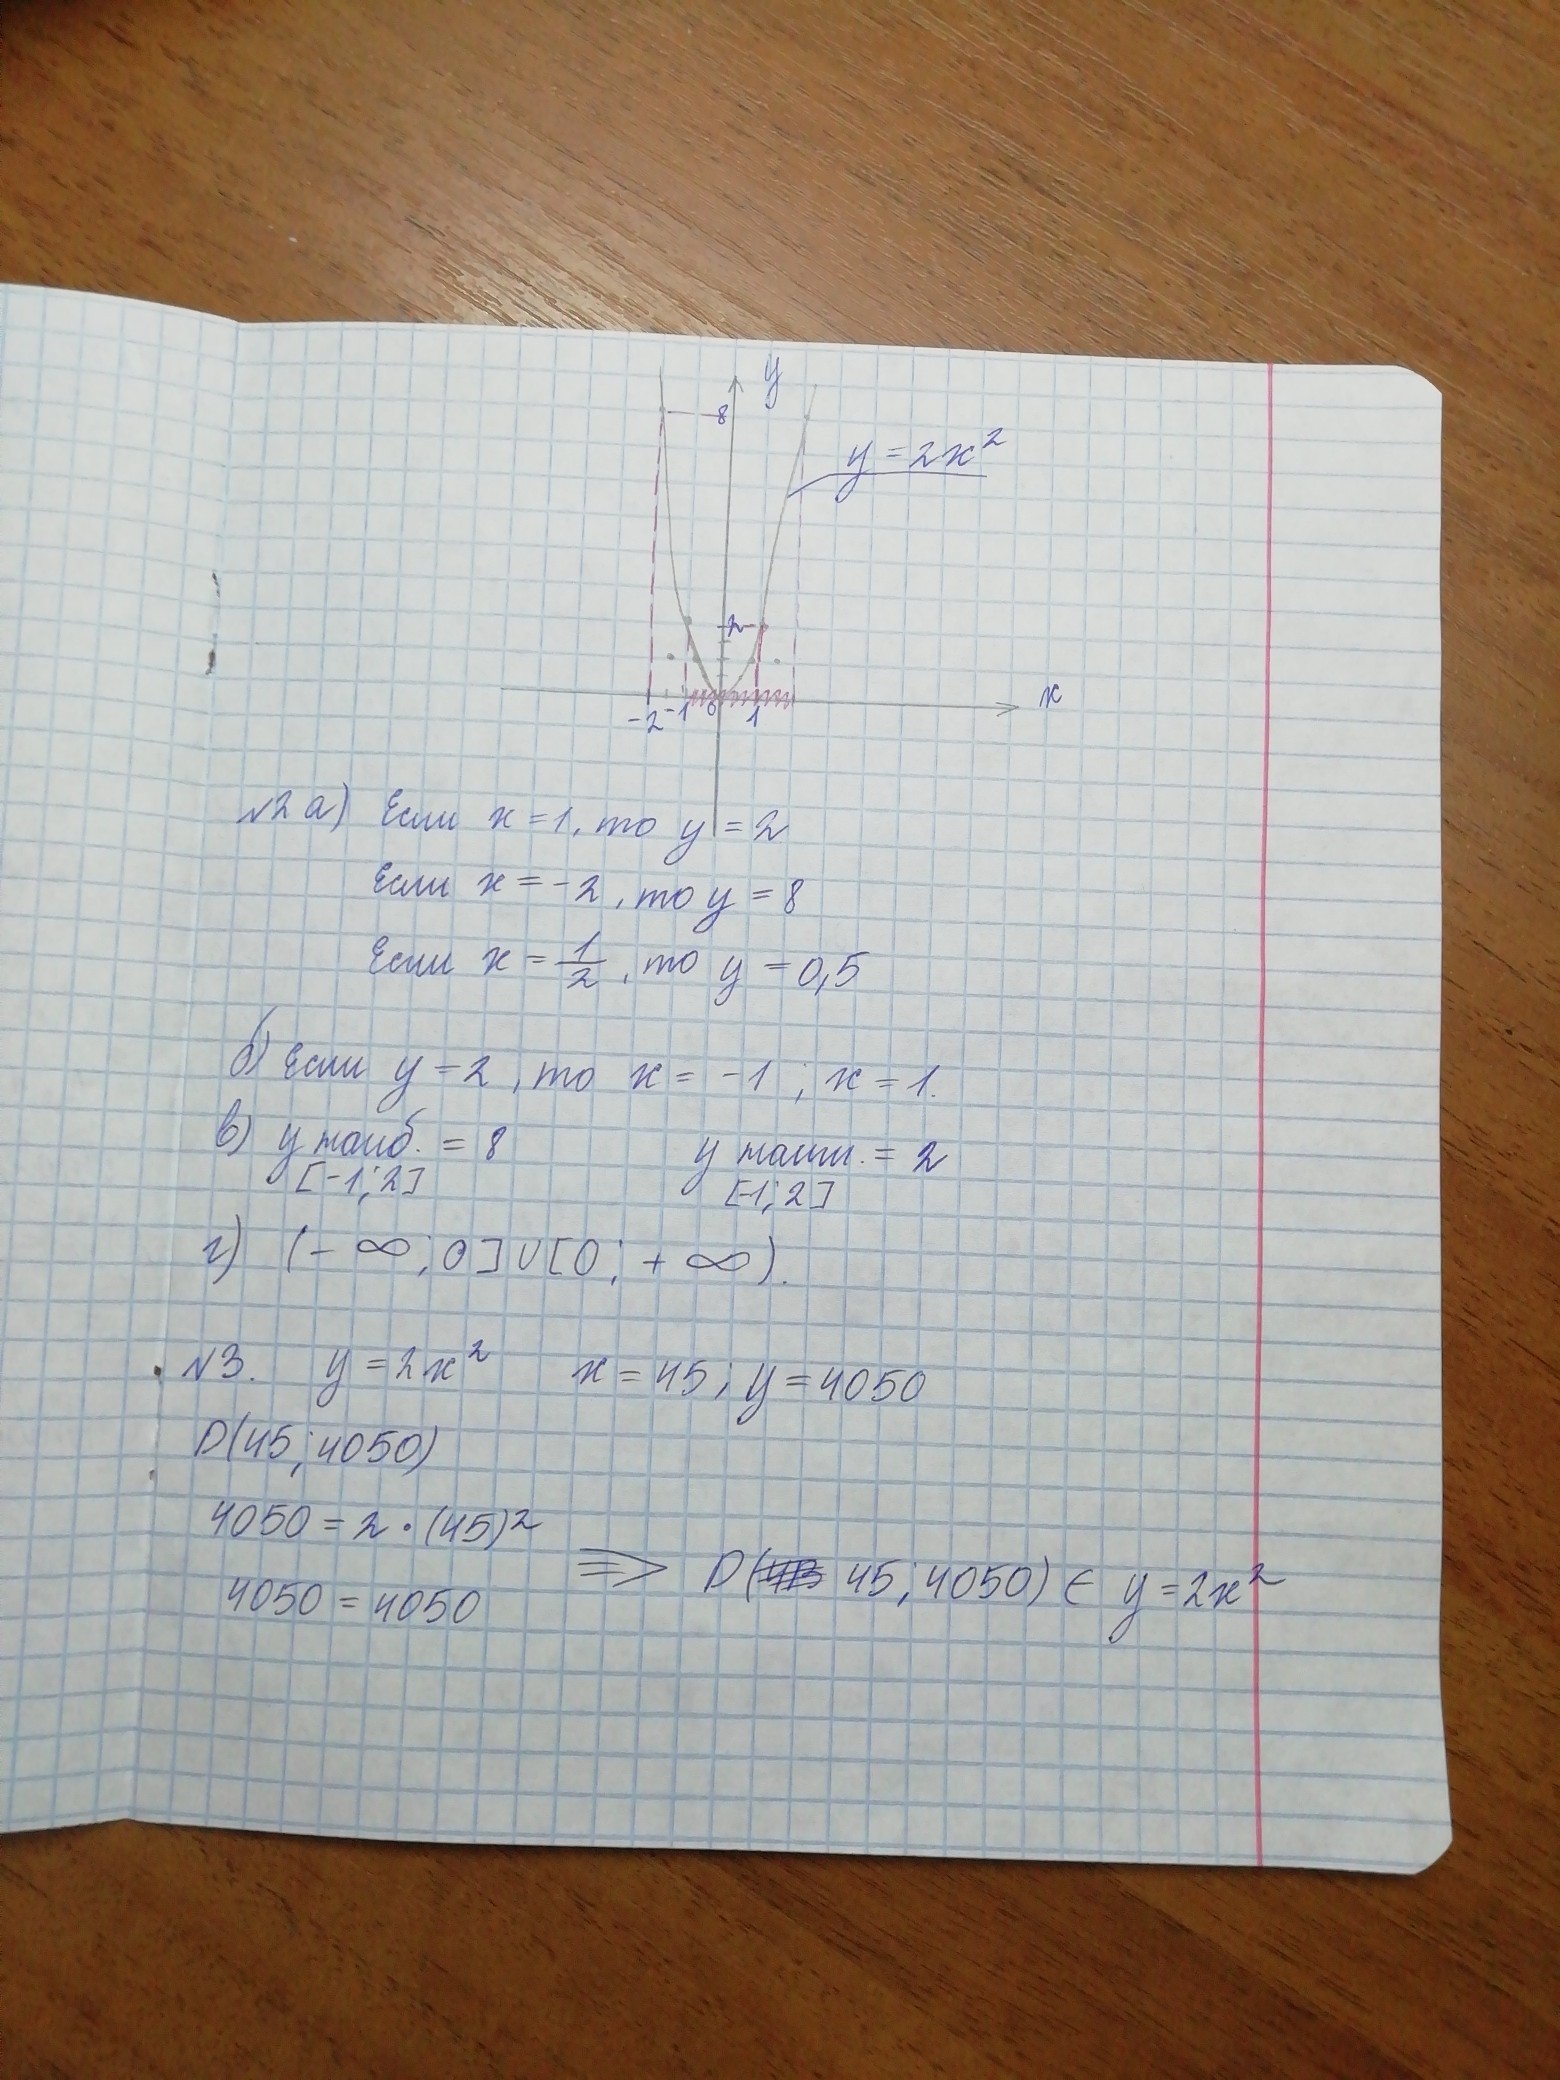 y
8
y = 2x²
2
x
-2 -1 0 1
№2 а) Если x = 1, то y = 2
Если x = -2, то y = 8
Если x = 1/2, то y = 0,5
б) Если y = 2, то x = -1 ; x = 1.
в) y наиб. = 8 y наим. = 2
[-1; 2] [-1; 2]
г) (-∞; 0] ∪ [0; +∞).
№3. y = 2x² x = 45; y = 4050
D(45; 4050)
4050 = 2 · (45)²
4050 = 4050 ⇒ D( 45; 4050) ∈ y = 2x²